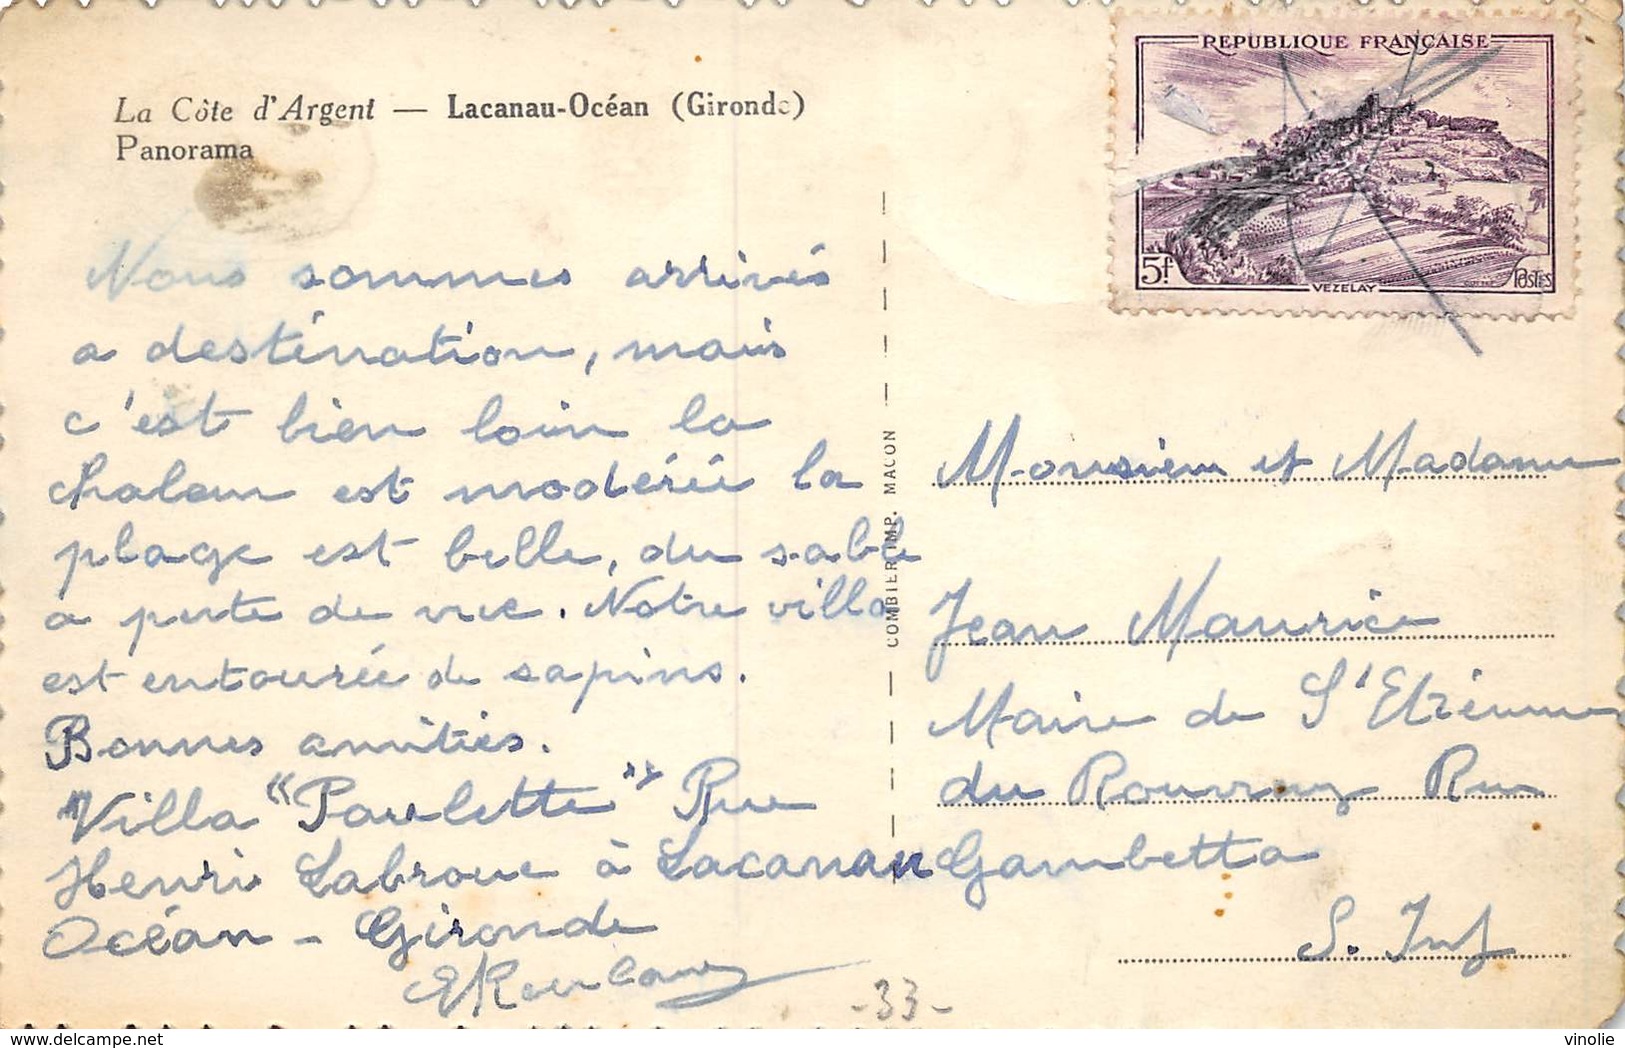 La Côte d'Argent — Lacanau-Océan (Gironde)
Panorama
REPUBLIQUE FRANÇAISE
5f
VEZELAY
POSTES
Nous sommes arrivés
a destination, mais
c'est bien loin la
chaleur est modérée la
plage est belle, du sable
a perte de vue. Notre villa
est entourée de sapins.
Bonnes amitiés.
Villa "Paulette" Rue
Henri Labroue à Lacanau
Océan - Gironde
COMBIER IMP. MACON
Monsieur et Madame
Jean Maurice
Maire de St Etienne
du Rouvray Rue
Gambetta
S. Inf
-33-
delcampe.net
vinolie